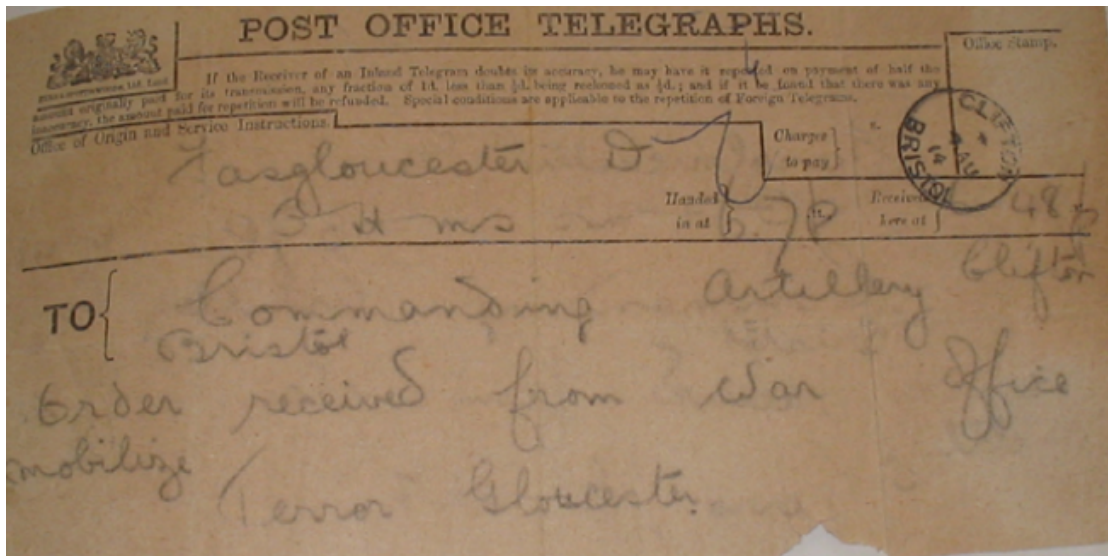 POST OFFICE TELEGRAPHS.
If the Receiver of an Inland Telegram doubts its accuracy, he may have it repeated on payment of half the
amount originally paid for its transmission, any fraction of 1d. less than ½d. being reckoned as ½d.; and if it be found that there was any
inaccuracy, the amount paid for repetition will be refunded. Special conditions are applicable to the repetition of Foreign Telegrams.
Office Stamp.
Office of Origin and Service Instructions.
Charges
to pay
CLIFTON
BRISTOL
4 AU
14
Fasgloucester D
O H m s
Handed
in at
Received
here at
48
TO
Commanding Artillery Clifton
Bristol
Order received from War Office
mobilize
Terror Gloucester